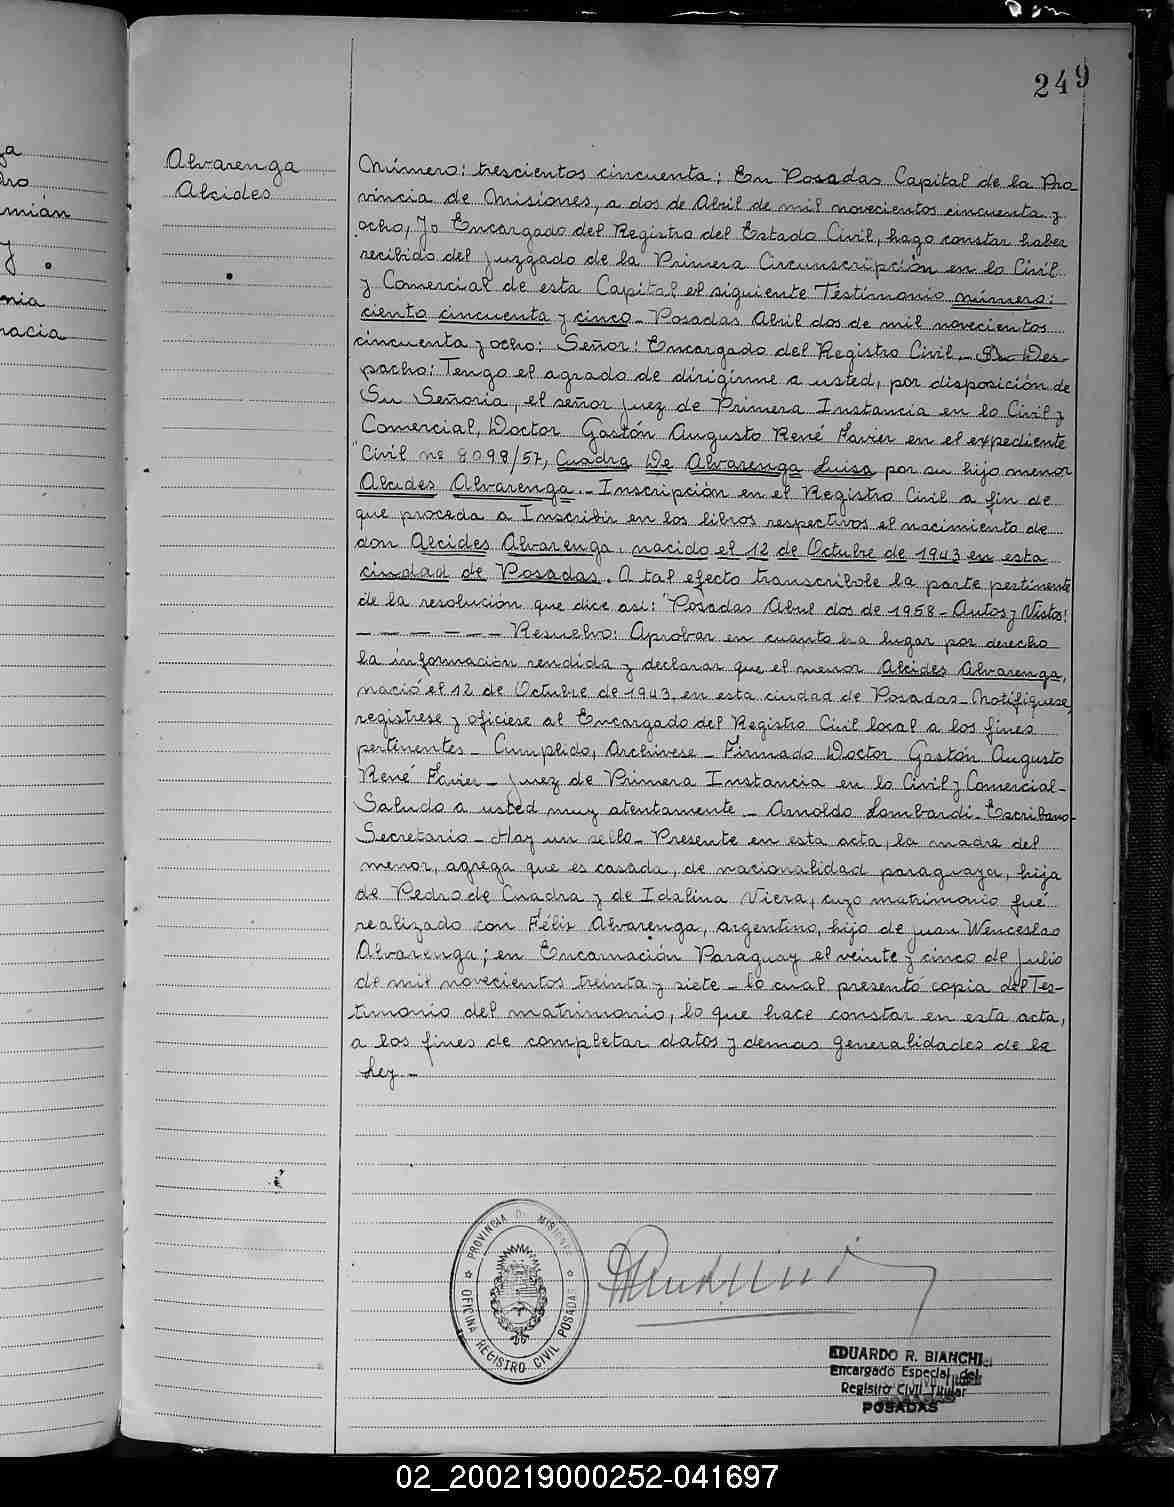 249
ga
dro
mián
y.
nia
nacia
Alvarenga
Alcides
Número: trescientos cincuenta: En Posadas Capital de la Pro
vincia de Misiones, a dos de Abril de mil novecientos cincuenta y
ocho, Yo Encargado del Registro del Estado Civil, hago constar haber
recibido del Juzgado de la Primera Circunscripción en lo Civil
y Comercial de esta Capital, el siguiente Testimonio número:
ciento cincuenta y cinco_ Posadas Abril dos de mil novecientos
cincuenta y ocho: Señor: Encargado del Registro Civil._ S/ Des-
pacho: Tengo el agrado de dirigirme a usted, por disposición de
Su Señoria, el señor Juez de Primera Instancia en lo Civil y
Comercial, Doctor Gastón Augusto René Favier en el expediente
Civil nº 8098/57, Cuadra De Alvarenga Luisa por su hijo menor
Alcides Alvarenga._ Inscripción en el Registro Civil a fin de
que proceda a Inscribir en los libros respectivos el nacimiento de
don Alcides Alvarenga, nacido el 12 de Octubre de 1943 en esta
ciudad de Posadas. A tal efecto transcribole la parte pertinente
de la resolución que dice asi: "Posadas Abril dos de 1958 _ Autos y Vistos!
_ _ _ _ _ _ Resuelvo: Aprobar en cuanto ha lugar por derecho
la información rendida y declarar que el menor Alcides Alvarenga,
nació el 12 de Octubre de 1943, en esta ciudad de Posadas_ Notifíquese,
registrese y oficiese al Encargado del Registro Civil local a los fines
pertinentes_ Cumplido, Archivese_ Firmado Doctor Gastón Augusto
René Favier_ Juez de Primera Instancia en lo Civil y Comercial_
Saludo a usted muy atentamente._ Arnoldo Lombardi_ Escribano-
Secretario_ Hay un sello_ Presente en esta acta, la madre del
menor, agrega que es casada, de nacionalidad paraguaya, hija
de Pedro de Cuadra y de Idalina Viera, cuyo matrimonio fué
realizado con Félix Alvarenga, argentino, hijo de Juan Wenceslao
Alvarenga; en Encarnación Paraguay el veinte y cinco de Julio
de mil novecientos treinta y siete_ lo cual presentó copia del Tes-
timonio del matrimonio, lo que hace constar en esta acta,
a los fines de completar datos y demas generalidades de la
Ley._
PROVINCIA DE MISIONES
OFICINA REGISTRO CIVIL POSADAS
EDUARDO R. BIANCHI
Encargado Especial del
Registro Civil Titular
POSADAS
02_200219000252-041697